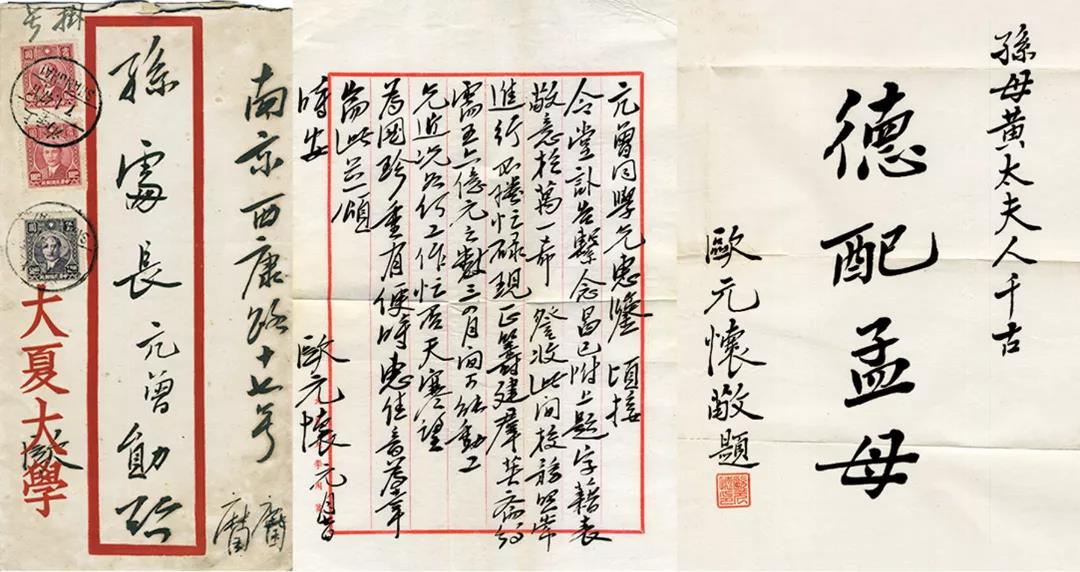 掛号
南京西康路十七号
孫處長元曾勛啟
大夏大學
SHANGHAI
元曾同學兄惠鑒 頃接
令堂訃告繫念曷已附上題字藉表
敬意於萬一希 詧收此間校務照常
進行不勝忙碌現正籌建群英齋約
需五六億元之數三四月間可能動工
兄近況如何工作忙否天寒望
為國珍重有便時惠佳音為幸
耑此并頌
時安
歐元懷 元月
孫母黃太夫人千古
德配孟母
歐元懷敬題